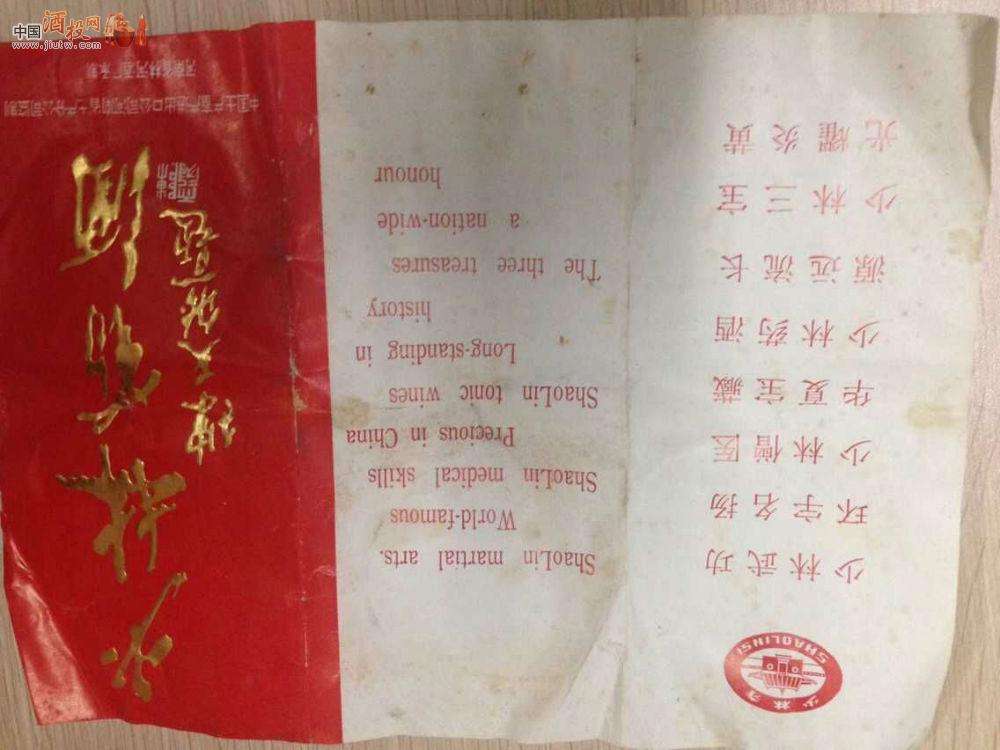 中国酒投网
www.jiutw.com
SHAOLINSI
少林寺
少林武功
环宇名扬
少林僧医
华夏宝藏
少林药酒
源远流长
少林三宝
光耀炎黄
ShaoLin martial arts.
World-famous
ShaoLin medical skills
Precious in China
ShaoLin tonic wines
Long-standing in
history
The three treasures
a nation-wide
honour
少林药酒
中国土产畜产进出口公司河南省土产分公司监制
河南省林河酒厂承制